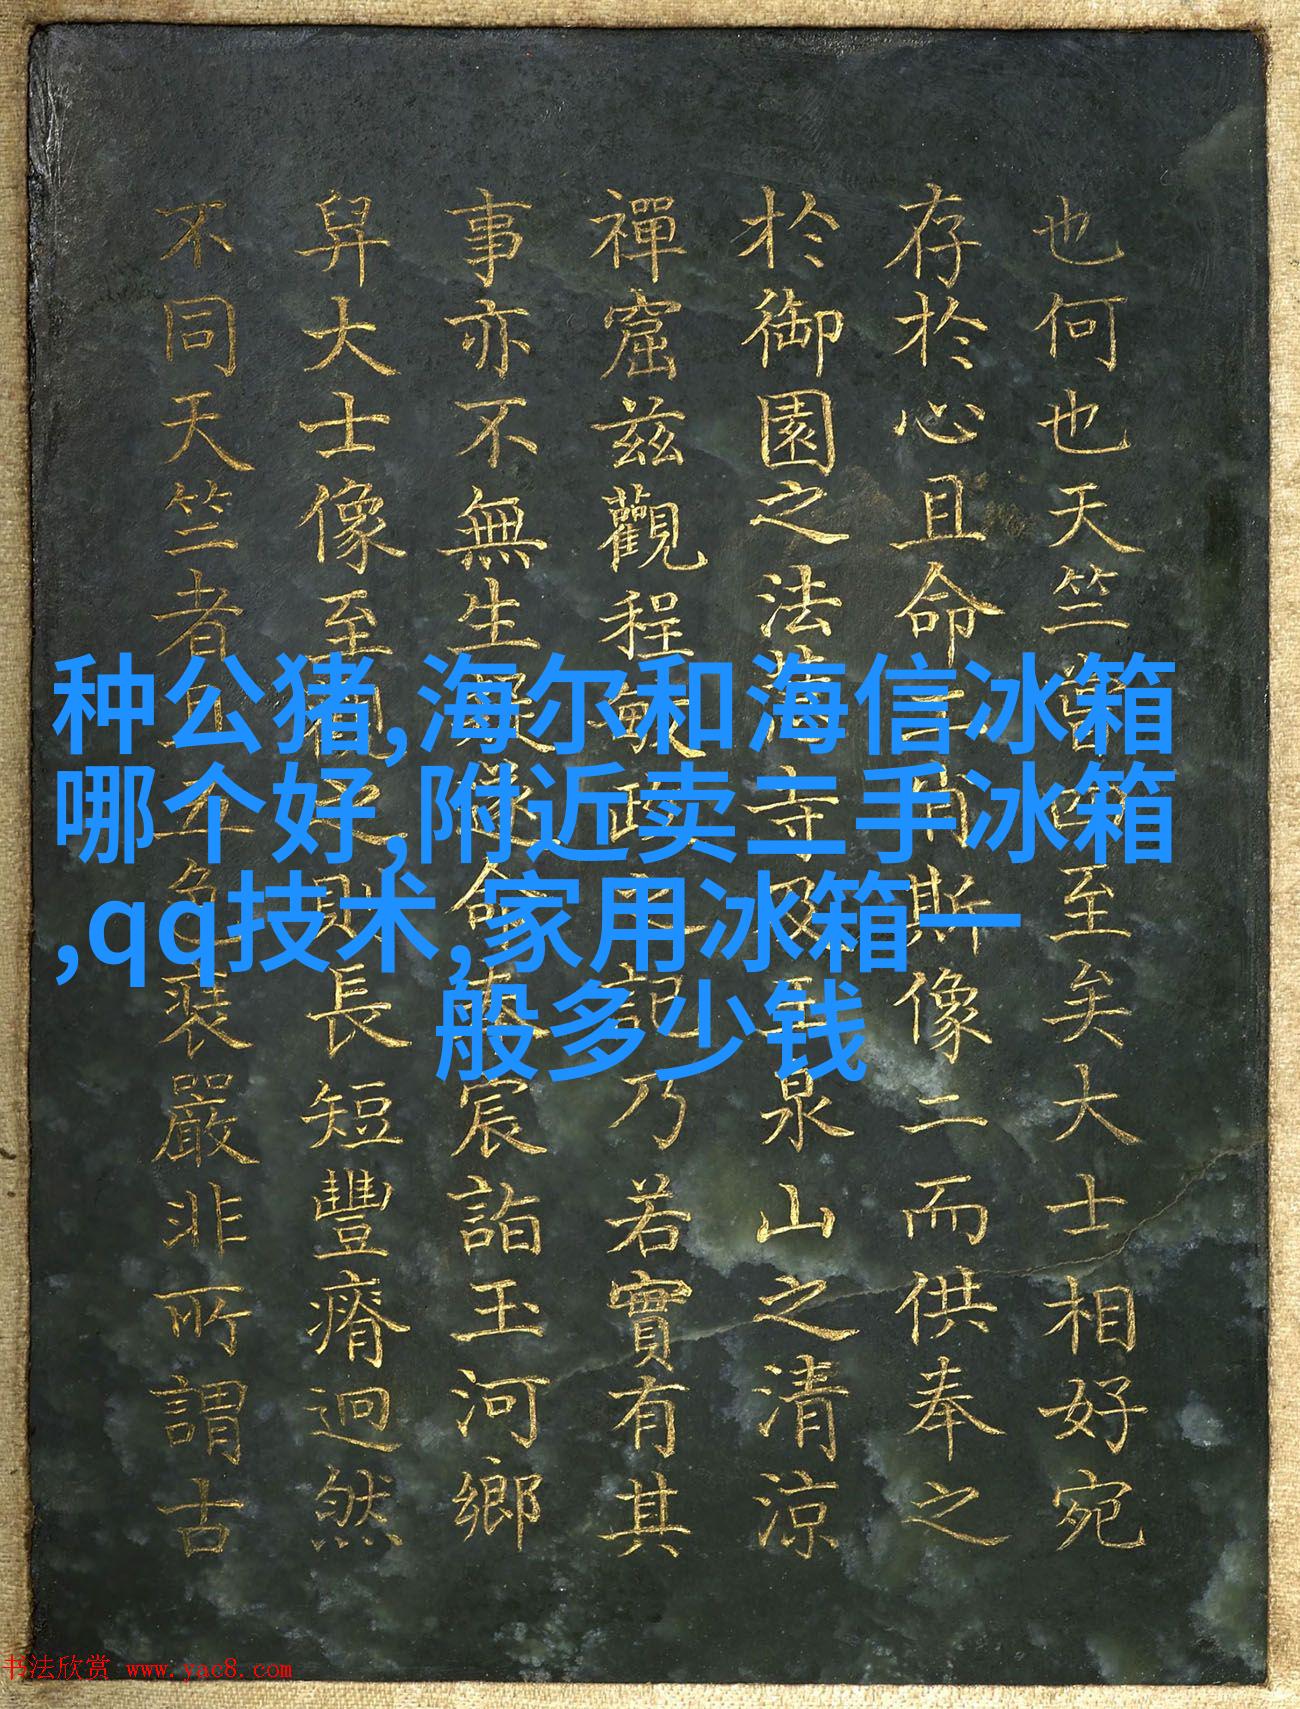 也何也天竺至矣大士相好宛
存於心且命肖斯像二而供奉之
於御園之法華寺及玉泉山之清涼
禪窟茲觀程敏政之記乃若實有其
事亦不無生疑遂命奉宸詣玉河鄉
舁大士像至觀之則長短豐瘠迥然
不同天竺者且五色裝嚴非所謂古
种公猪,海尔和海信冰箱
哪个好,附近卖二手冰箱
,qq技术,家用冰箱一
般多少钱
书法欣赏 www.yac8.com